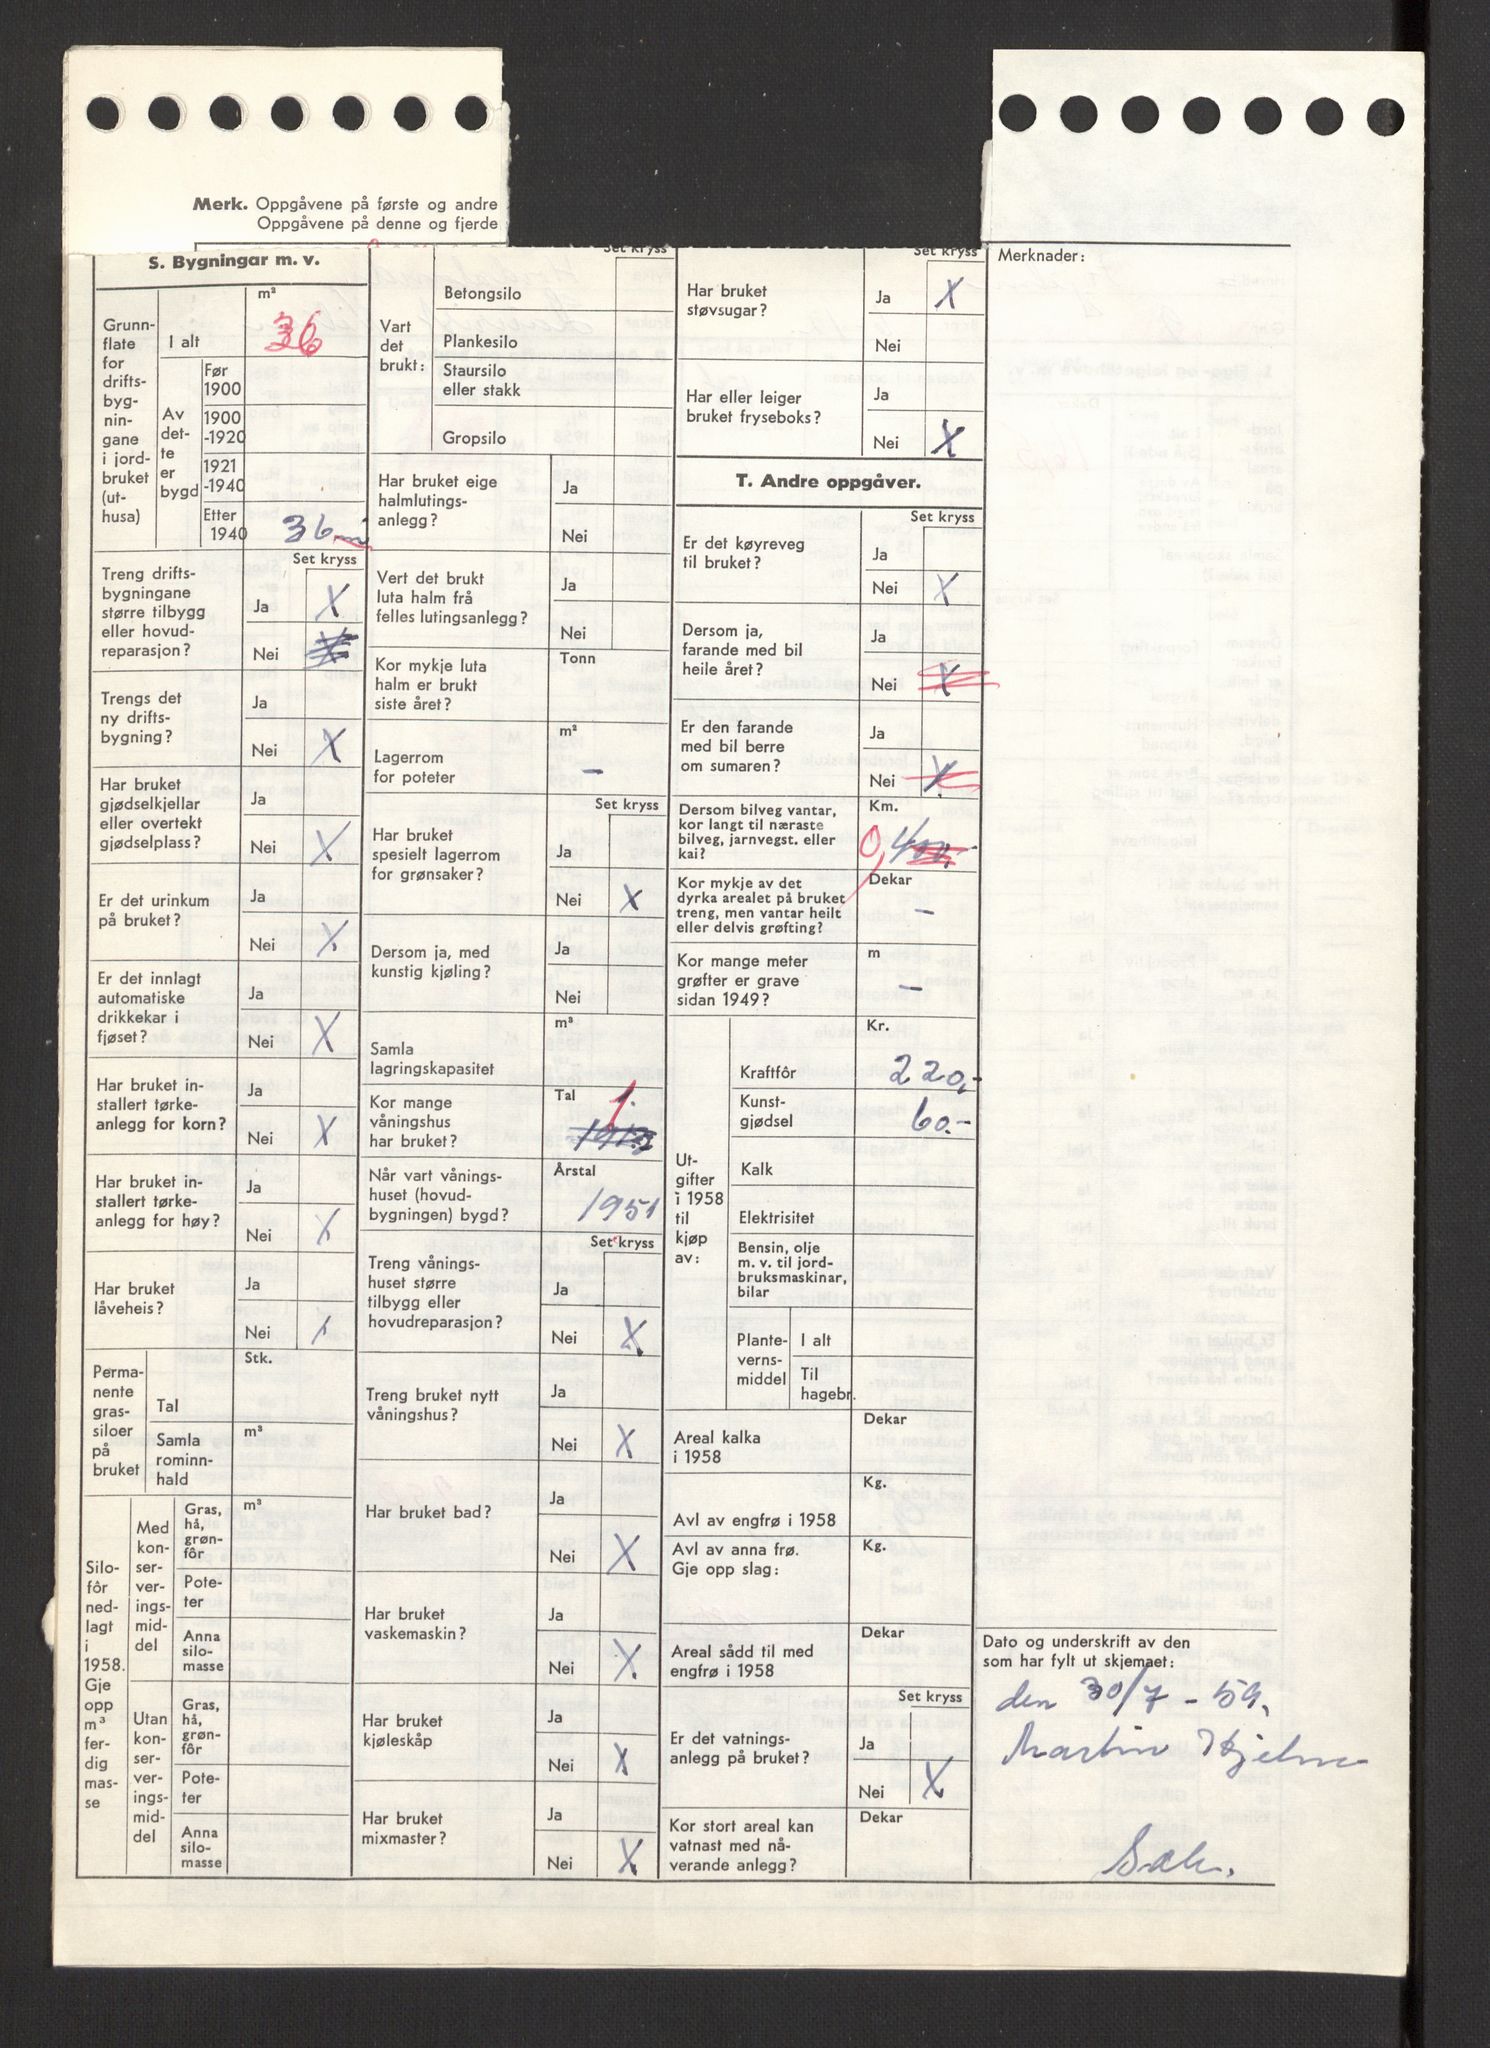 Merk. Oppgåvene på første og andre
Oppgåvene på denne og fjerde
S. Bygningar m. v.
Grunn-
flate
for
drifts-
byg-
nin-
gane
i jord-
bruket
(ut-
husa)
m²
I alt
36
Av
det-
te
er
bygd
Før
1900
1900
-1920
1921
-1940
Etter
1940
36 m
Set kryss
Treng drifts-
bygningane
større tilbygg
eller hovud-
reparasjon?
Ja X
Nei
Trengs det
ny drifts-
bygning?
Ja
Nei X
Har bruket
gjødselkjellar
eller overtekt
gjødselplass?
Ja
Nei X
Er det urinkum
på bruket?
Ja
Nei X
Er det innlagt
automatiske
drikkekar i
fjøset?
Ja
Nei X
Har bruket in-
stallert tørke-
anlegg for korn?
Ja
Nei X
Har bruket in-
stallert tørke-
anlegg for høy?
Ja
Nei X
Har bruket
låveheis?
Ja
Nei X
Perma-
nente
gras-
siloer
på
bruket
Stk.
Tal
Samla
rominn-
hald
m³
Silo-
fôr
ned-
lagt
i
1958.
Gje
opp
m³
fer-
dig
mas-
se
Med
kon-
ser-
ver-
ings-
mid-
del
Gras,
hå,
grøn-
fôr
m³
Pote-
ter
Anna
silo-
masse
Utan
kon-
ser-
ver-
ings-
mid-
del
Gras,
hå,
grøn-
fôr
Pote-
ter
Anna
silo-
masse
Set kryss
Vart
det
brukt:
Betongsilo
Plankesilo
Staursilo
eller stakk
Gropsilo
Har bruket eige
halmlutings-
anlegg?
Ja
Nei
Vert det brukt
luta halm frå
felles lutingsanlegg?
Ja
Nei
Kor mykje luta
halm er brukt
siste året?
Tonn
Lagerrom
for poteter
m²
–
Set kryss
Har bruket
spesielt lagerrom
for grønsaker?
Ja
Nei X
Dersom ja, med
kunstig kjøling?
Ja
Nei
Samla
lagringskapasitet
m³
Kor mange
våningshus
har bruket?
Tal
1.
Når vart vånings-
huset (hovud-
bygningen) bygd?
Årstal
1951
Set kryss
Treng vånings-
huset større
tilbygg eller
hovudreparasjon?
Ja
Nei X
Treng bruket nytt
våningshus?
Ja
Nei X
Har bruket bad?
Ja
Nei X
Har bruket
vaskemaskin?
Ja
Nei X
Har bruket
kjøleskåp
Ja
Nei X
Har bruket
mixmaster?
Ja
Nei X
Set kryss
Har bruket
støvsugar?
Ja X
Nei
Har eller leiger
bruket fryseboks?
Ja
Nei X
T. Andre oppgåver.
Set kryss
Er det køyreveg
til bruket?
Ja
Nei X
Dersom ja,
farande med bil
heile året?
Ja
Nei X
Er den farande
med bil berre
om sumaren?
Ja
Nei X
Dersom bilveg vantar,
kor langt til næraste
bilveg, jarnvegst. eller
kai?
Km.
0,4
Kor mykje av det
dyrka arealet på bruket
treng, men vantar heilt
eller delvis grøfting?
Dekar
–
Kor mange meter
grøfter er grave
sidan 1949?
m
–
Ut-
gifter
i 1958
til
kjøp
av:
Kr.
Kraftfôr 220,-
Kunst-
gjødsel 60.-
Kalk
Elektrisitet
Bensin, olje
m. v. til jord-
bruksmaskinar,
bilar
Plante-
verns-
middel
I alt
Til
hagebr.
Areal kalka
i 1958
Dekar
Avl av engfrø i 1958
Kg.
Avl av anna frø.
Gje opp slag:
Kg.
Areal sådd til med
engfrø i 1958
Dekar
Set kryss
Er det vatnings-
anlegg på bruket?
Ja
Nei X
Kor stort areal kan
vatnast med nå-
verande anlegg?
Dekar
Merknader:
Dato og underskrift av den
som har fylt ut skjemaet:
den 30/7 - 59.
Martin Hjelme